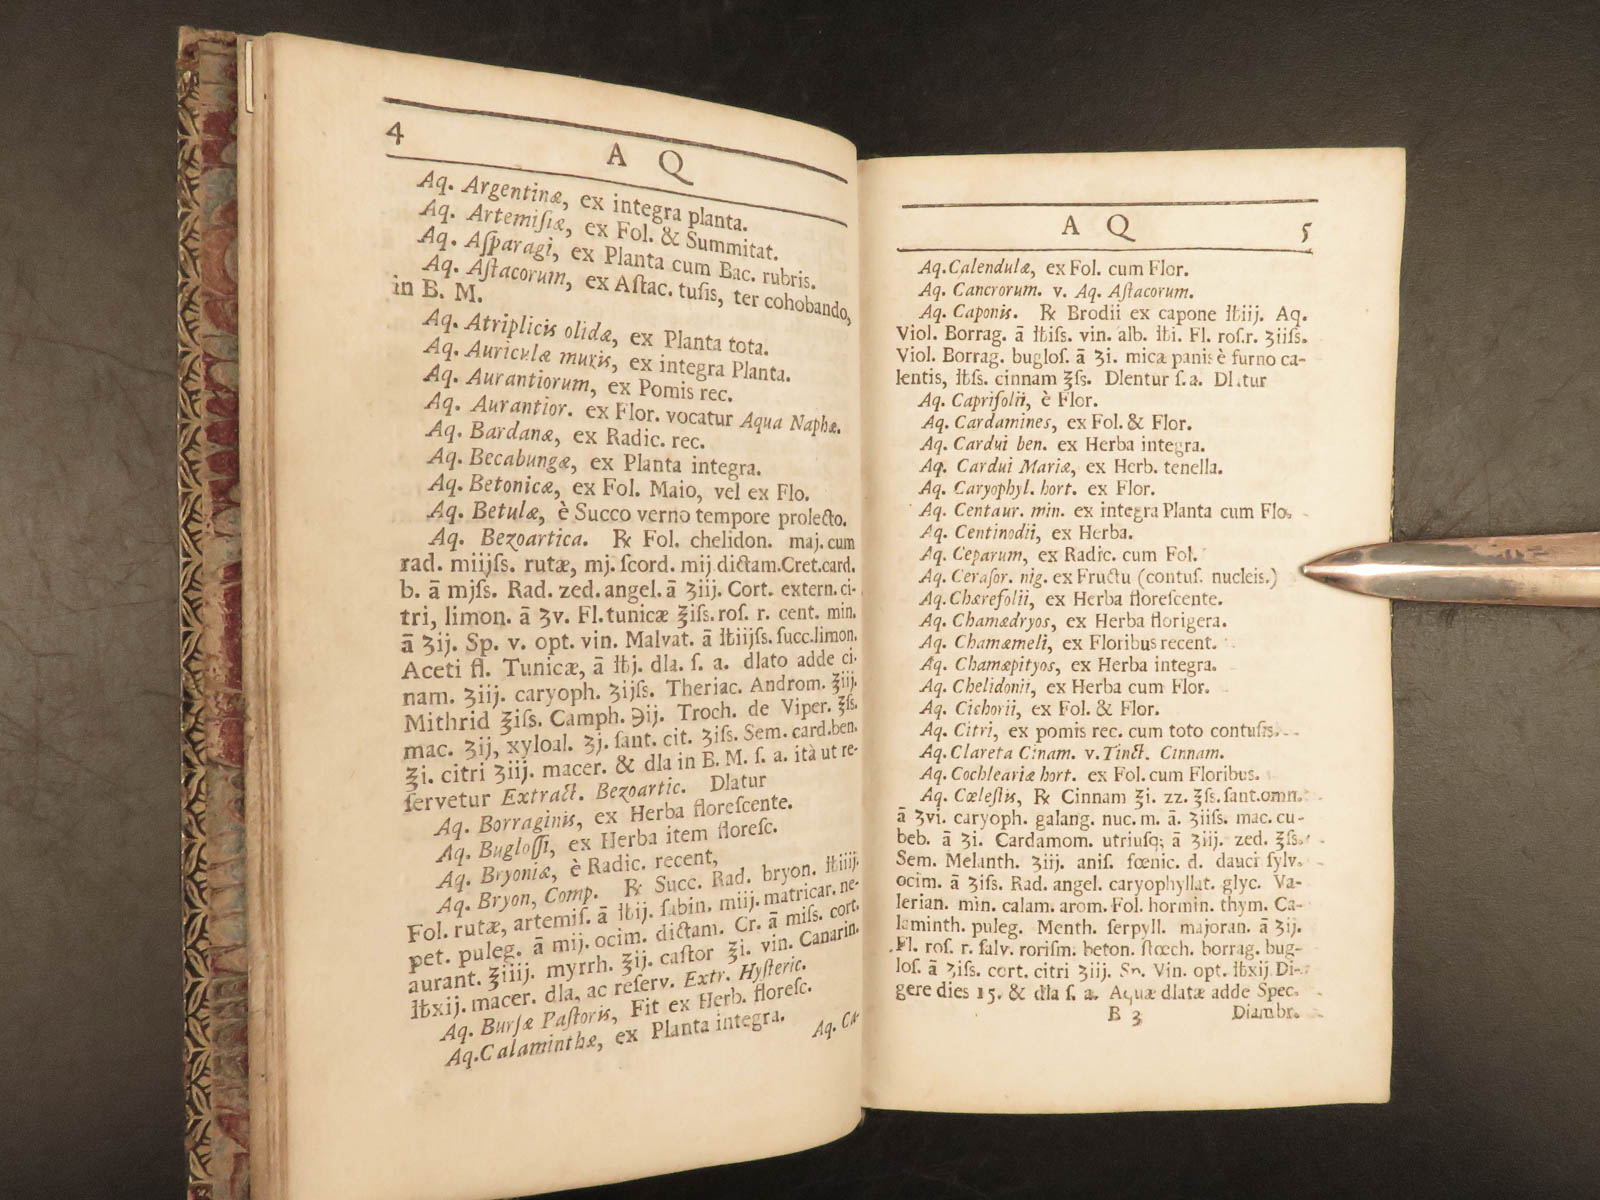 4
A Q
Aq. Argentinæ, ex integra planta.
Aq. Artemiſiæ, ex Fol. & Summitat.
Aq. Aſparagi, ex Planta cum Bac. rubris.
Aq. Aſtacorum, ex Aſtac. tuſis, ter cohobando,
in B. M.
Aq. Atriplicis olidæ, ex Planta tota.
Aq. Auriculæ muris, ex integra Planta.
Aq. Aurantiorum, ex Pomis rec.
Aq. Aurantior. ex Flor. vocatur Aqua Naphæ.
Aq. Bardanæ, ex Radic. rec.
Aq. Becabungæ, ex Planta integra.
Aq. Betonicæ, ex Fol. Maio, vel ex Flo.
Aq. Betulæ, è Succo verno tempore prolecto.
Aq. Bezoartica. ℞ Fol. chelidon. maj. cum
rad. miijſs. rutæ, mj. ſcord. mij dictam. Cret. card.
b. ā mjſs. Rad. zed. angel. ā ʒiij. Cort. extern. ci-
tri, limon. ā ʒv. Fl. tunicæ ℥iſs. roſ. r. cent. min.
ā ʒij. Sp. v. opt. vin. Malvat. ā ℔iijſs. ſucc. limon.
Aceti fl. Tunicæ, ā ℔j. dla. ſ. a. dlato adde ci-
nam. ʒiij. caryoph. ʒijſs. Theriac. Androm. ℥iij.
Mithrid ℥iſs. Camph. ℈ij. Troch. de Viper. ℥ſs.
mac. ʒij, xyloal. ʒj. ſant. cit. ʒiſs. Sem. card. ben.
℥i. citri ʒiij. macer. & dla in B. M. ſ. a. ità ut re-
ſervetur Extract. Bezoartic. Dlatur
Aq. Borraginis, ex Herba floreſcente.
Aq. Bugloſſi, ex Herba item floreſc.
Aq. Bryoniæ, è Radic. recent,
Aq. Bryon, Comp. ℞ Succ. Rad. bryon. ℔iiij.
Fol. rutæ, artemiſ. ā ℔ij. ſabin. miij. matricar. ne-
pet. puleg. ā mij. ocim. dictam. Cr. ā miſs. cort.
aurant. ℥iiij. myrrh. ℥ij. caſtor ℥i. vin. Canarin.
℔xij. macer. dla, ac reſerv. Extr. Hyſteric.
Aq. Burſæ Paſtoris, Fit ex Herb. floreſc.
Aq. Calaminthæ, ex Planta integra.
Aq. Ca-
A Q
5
Aq. Calendulæ, ex Fol. cum Flor.
Aq. Cancrorum. v. Aq. Aſtacorum.
Aq. Caponis. ℞ Brodii ex capone ℔iij. Aq.
Viol. Borrag. ā ℔iſs. vin. alb. ℔i. Fl. roſ. r. ʒiiſs.
Viol. Borrag. bugloſ. ā ʒi. micæ panis è furno ca-
lentis, ℔ſs. cinnam ℥ſs. Dlentur ſ. a. Dlatur
Aq. Caprifolii, è Flor.
Aq. Cardamines, ex Fol. & Flor.
Aq. Cardui ben. ex Herba integra.
Aq. Cardui Mariæ, ex Herb. tenella.
Aq. Caryophyl. hort. ex Flor.
Aq. Centaur. min. ex integra Planta cum Flo.
Aq. Centinodii, ex Herba.
Aq. Ceparum, ex Radic. cum Fol.
Aq. Ceraſor. nig. ex Fructu (contuſ. nucleis.)
Aq. Chærefolii, ex Herba floreſcente.
Aq. Chamædryos, ex Herba florigera.
Aq. Chamæmeli, ex Floribus recent.
Aq. Chamæpityos, ex Herba integra.
Aq. Chelidonii, ex Herba cum Flor.
Aq. Cichorii, ex Fol. & Flor.
Aq. Citri, ex pomis rec. cum toto contuſis.
Aq. Clareta Cinam. v. Tinct. Cinnam.
Aq. Cochleariæ hort. ex Fol. cum Floribus.
Aq. Cœleſtis, ℞ Cinnam ℥i. zz. ℥ſs. ſant. omn.
ā ʒvi. caryoph. galang. nuc. m. ā. ʒiiſs. mac. cu-
beb. ā ʒi. Cardamom. utriuſq; ā ʒiij. zed. ℥ſs.
Sem. Melanth. ʒiij. aniſ. fœnic. d. dauci ſylv.
ocim. ā ʒiſs. Rad. angel. caryophyllat. glyc. Va-
lerian. min. calam. arom. Fol. hormin. thym. Ca-
laminth. puleg. Menth. ſerpyll. majoran. ā ʒij.
Fl. roſ. r. ſalv. roriſm. beton. ſtœch. borrag. bug-
loſ. ā ʒiſs. cort. citri ʒiij. Sp. Vin. opt. ℔xij. Di-
gere dies 15. & dla ſ. a. Aquæ dlatæ adde Spec.
B 3
Diambr.